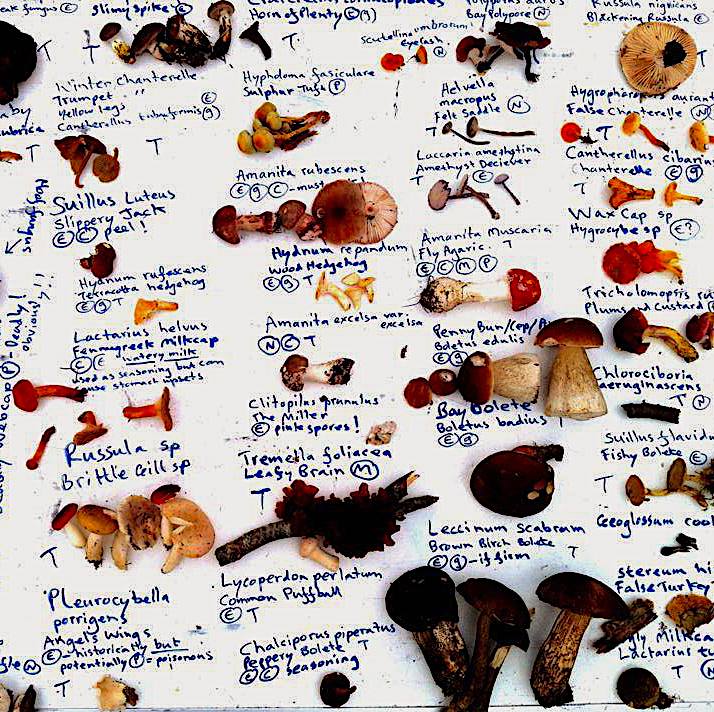 slimy spike
Winter Chanterelle
Trumpet " "
Yellow legs
Cantharellus tubaeformis
Suillus Luteus
Slippery Jack
(E)(C) peel!
Hydnum rufescens
Terracotta hedgehog
(E)(g) T
Lactarius helvus
Fenugreek Milkcap
(C)(E) watery milk
used as seasoning but can
cause stomach upsets
Russula sp
Brittle Gill sp
T
Pleurocybella
porrigens
Angels Wings
(E)-historically but
potentially (P)= poisonous
T
Horn of Plenty (E)(g)
T
Hyphdoma fasiculare
Sulphar Tuft (P)
Amanita rubescens
(E)(g)(C)-must
Hydnum repandum
Wood Hedgehog
(E)(g) T
Amanita excelsa var.
excelsa
(N)(C) T
Clitopilus prunulus
The Miller
(E) pink spores!
Tremella foliacea
Leafy Brain (M)
T
Lycoperdon perlatum
Common Puffball
(E) T
Chalciporus piperatus
Peppery Bolete T
(E)(C) seasoning
Scutellina umbrorum
eyelash (N)
T
Bay Polypore (N)
Helvella
macropus
Felt Saddle (N)
T
Laccaria amethytina
Amethyst Deciever
T (E)
Amanita Muscaria
Fly Agaric. T
(E)(C)(M)(P)
Penny Bun/Cep/
Boletus edulis
(E)(g)
Bay Bolete
Boletus badius
(E)(g)
Leccinum scabrum
Brown Birch Bolete
(E)(g)-if firm T
Russula nigricans
Blackening Russula (E)
T
Hygrophoropsis aurant
False Chanterelle (N)
T
Cantherellus cibarius
Chanterelle (E)(g)
T
Wax Cap sp
Hygrocybe sp (E?)
Tricholomopsis ru
Plums and Custard
Chlorociboria
aeruginascens
T (N)
Suillus flavidu
Fishy Bolete (E)
T
Geoglossum cool
Stereum hi
False Turkey
Ugly Milkca
Lactarius tu
T (N)